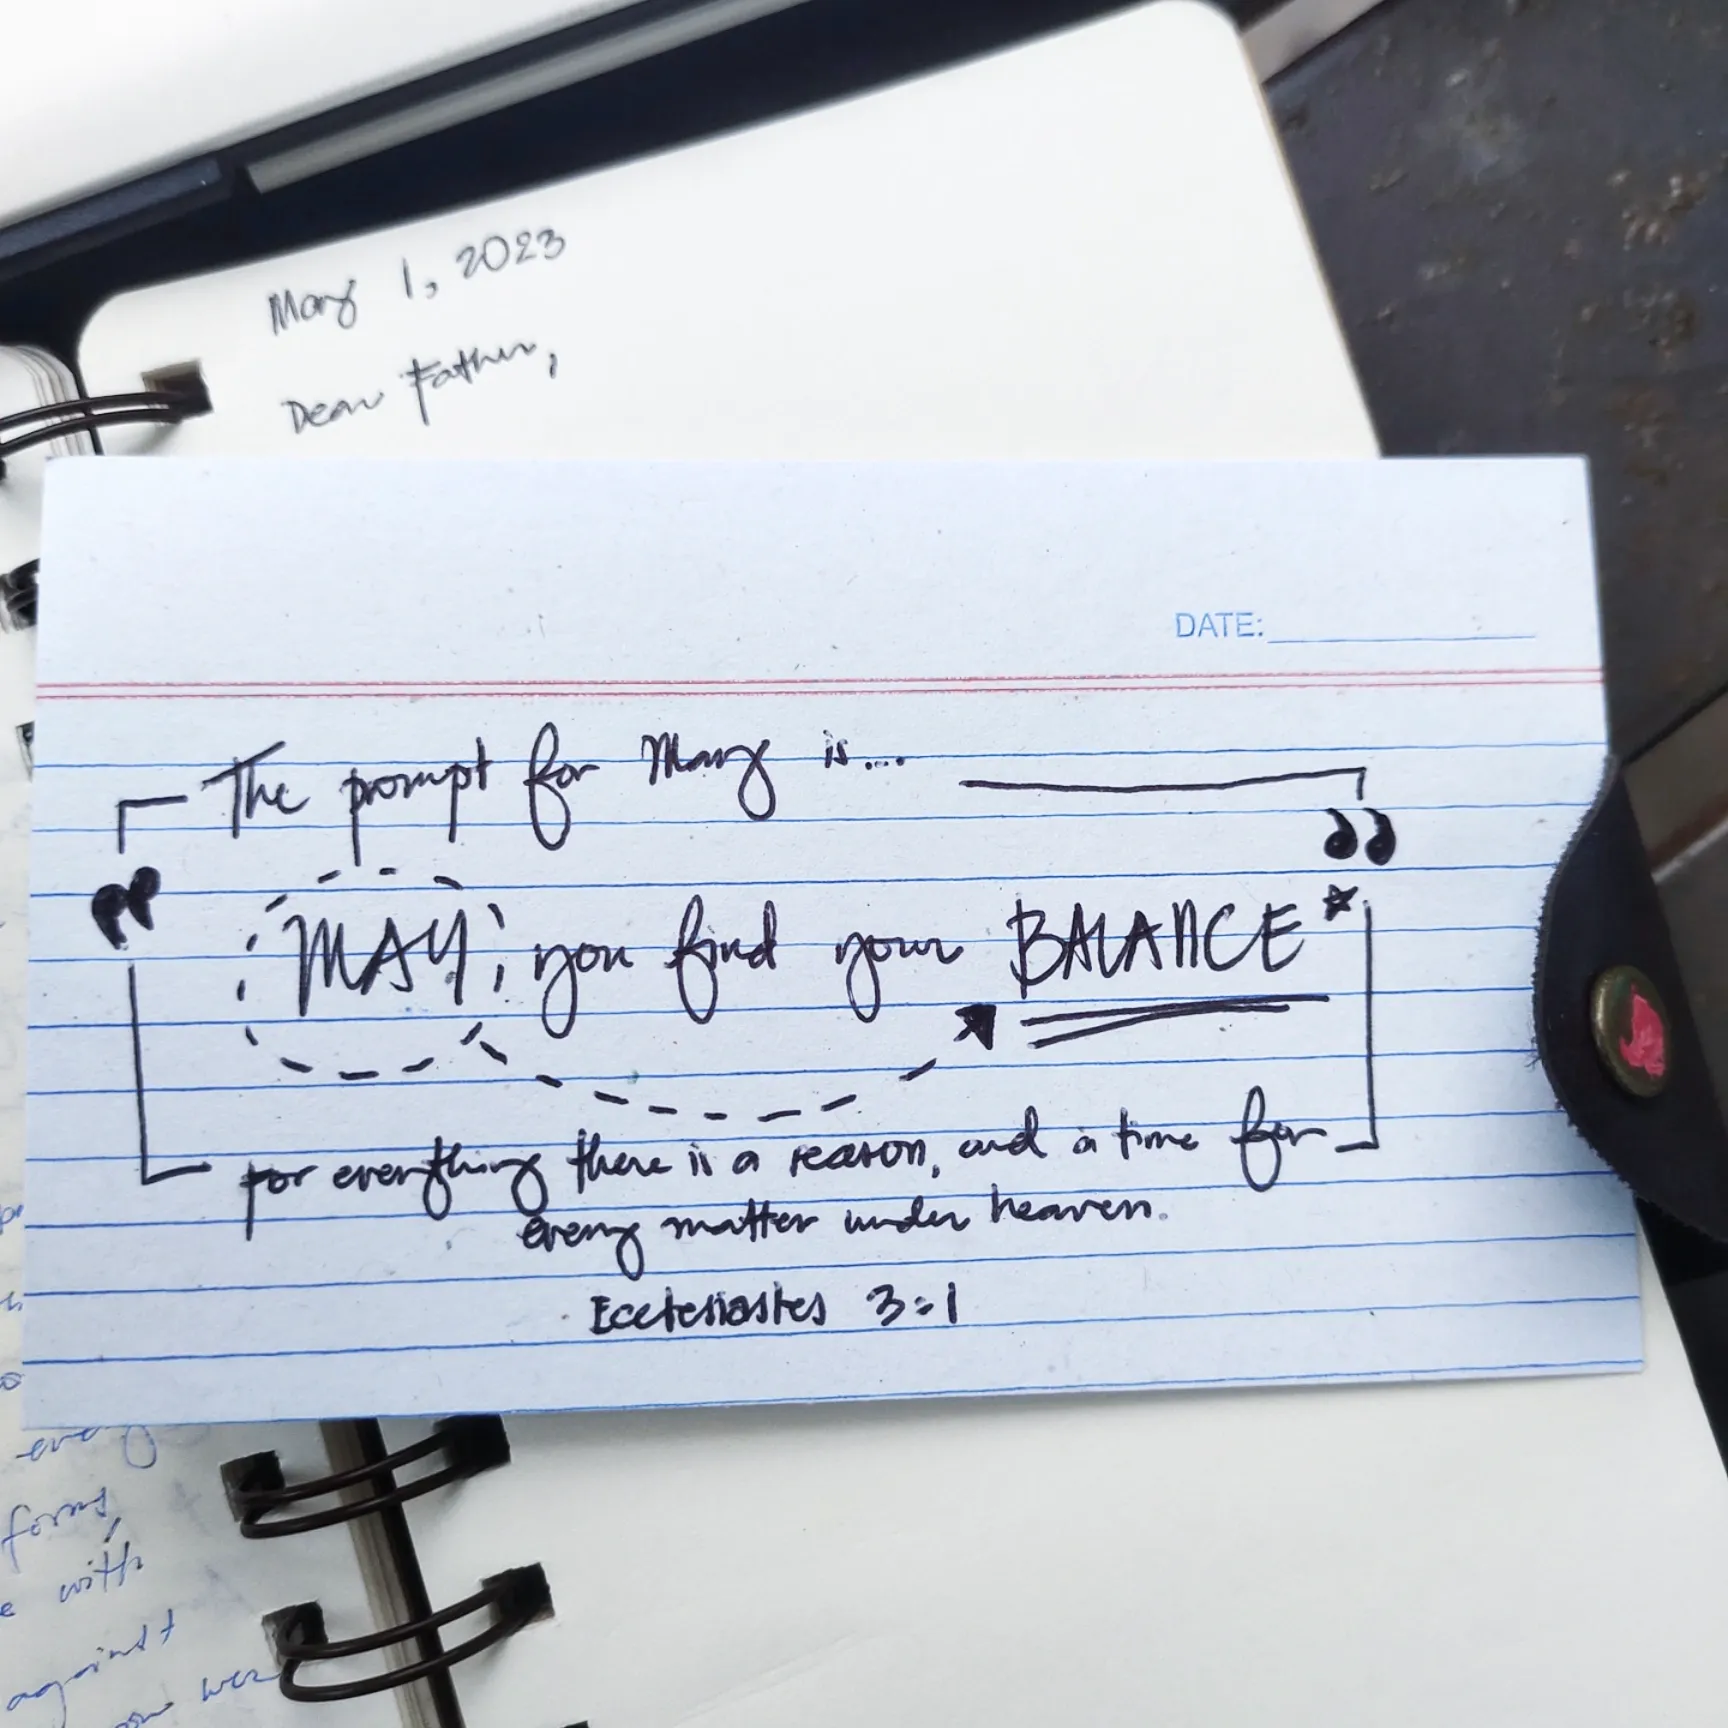 May 1, 2023
Dear Father,
DATE:
The prompt for May is...
"MAY you find your BALANCE*"
for everything there is a reason, and a time for
every matter under heaven.
Ecclesiastes 3:1
every
forms,
with
against
wer